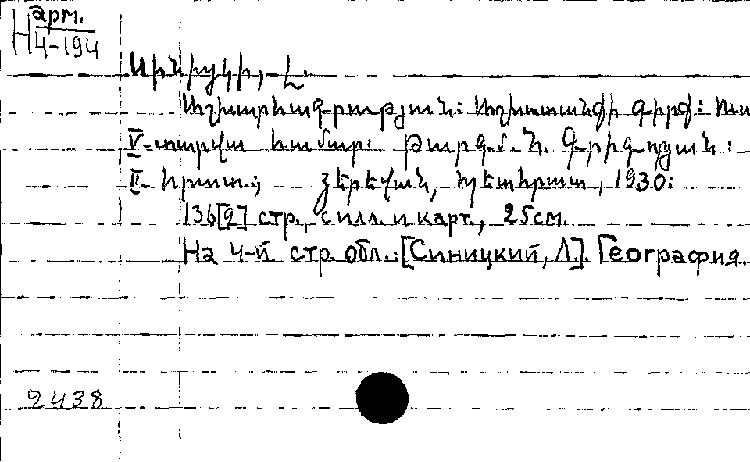 арм.
Н 4-194
Սինիցկի, Լ.
Աշխարհագրություն: Աշխատանքի գիրք: Ուս
V-տարվա համար: Թարգմ. Ն. Գրիգորյան:
II- հրատ.; Յերեվան, Պետհրատ, 1930:
136[2] стр., с илл. и карт., 25см.
На 4-й стр. обл.: [Синицкий, Л.]. География.
2438